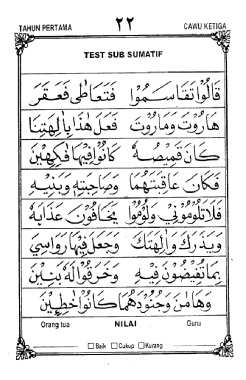 TAHUN PERTAMA ٢٢ CAWU KETIGA
TEST SUB SUMATIF
قَالُوْا تَقَاسَمُوْا فَتَعَاطَى فَعَقَرَ
هَارُوْتَ وَمَارُوْتَ فَعَلَ هٰذَا بِاٰلِهَتِنَا
كَانَ قَمِيْصُهٗ كَانُوْا فِيْهَا فٰكِهِيْنَ
فَكَانَ عَاقِبَتَهُمَا وَصَاحِبَتِهٖ وَبَنِيْهِ
فَلَا تَلُوْمُوْنِيْ وَلُوْمُوْا يَخَافُوْنَ عَذَابَهٗ
وَيَذَرَكَ وَاٰلِهَتَكَ وَجَعَلَ فِيْهَا رَوَاسِيَ
بِمَا تُفِيْضُوْنَ فِيْهِ وَخَرَقُوْا لَهٗ بَنِيْنَ
وَهَامٰنَ وَجُنُوْدَهُمَا كَانُوْا خٰطِـِٕيْنَ
Orang tua NILAI Guru
Baik Cukup Kurang